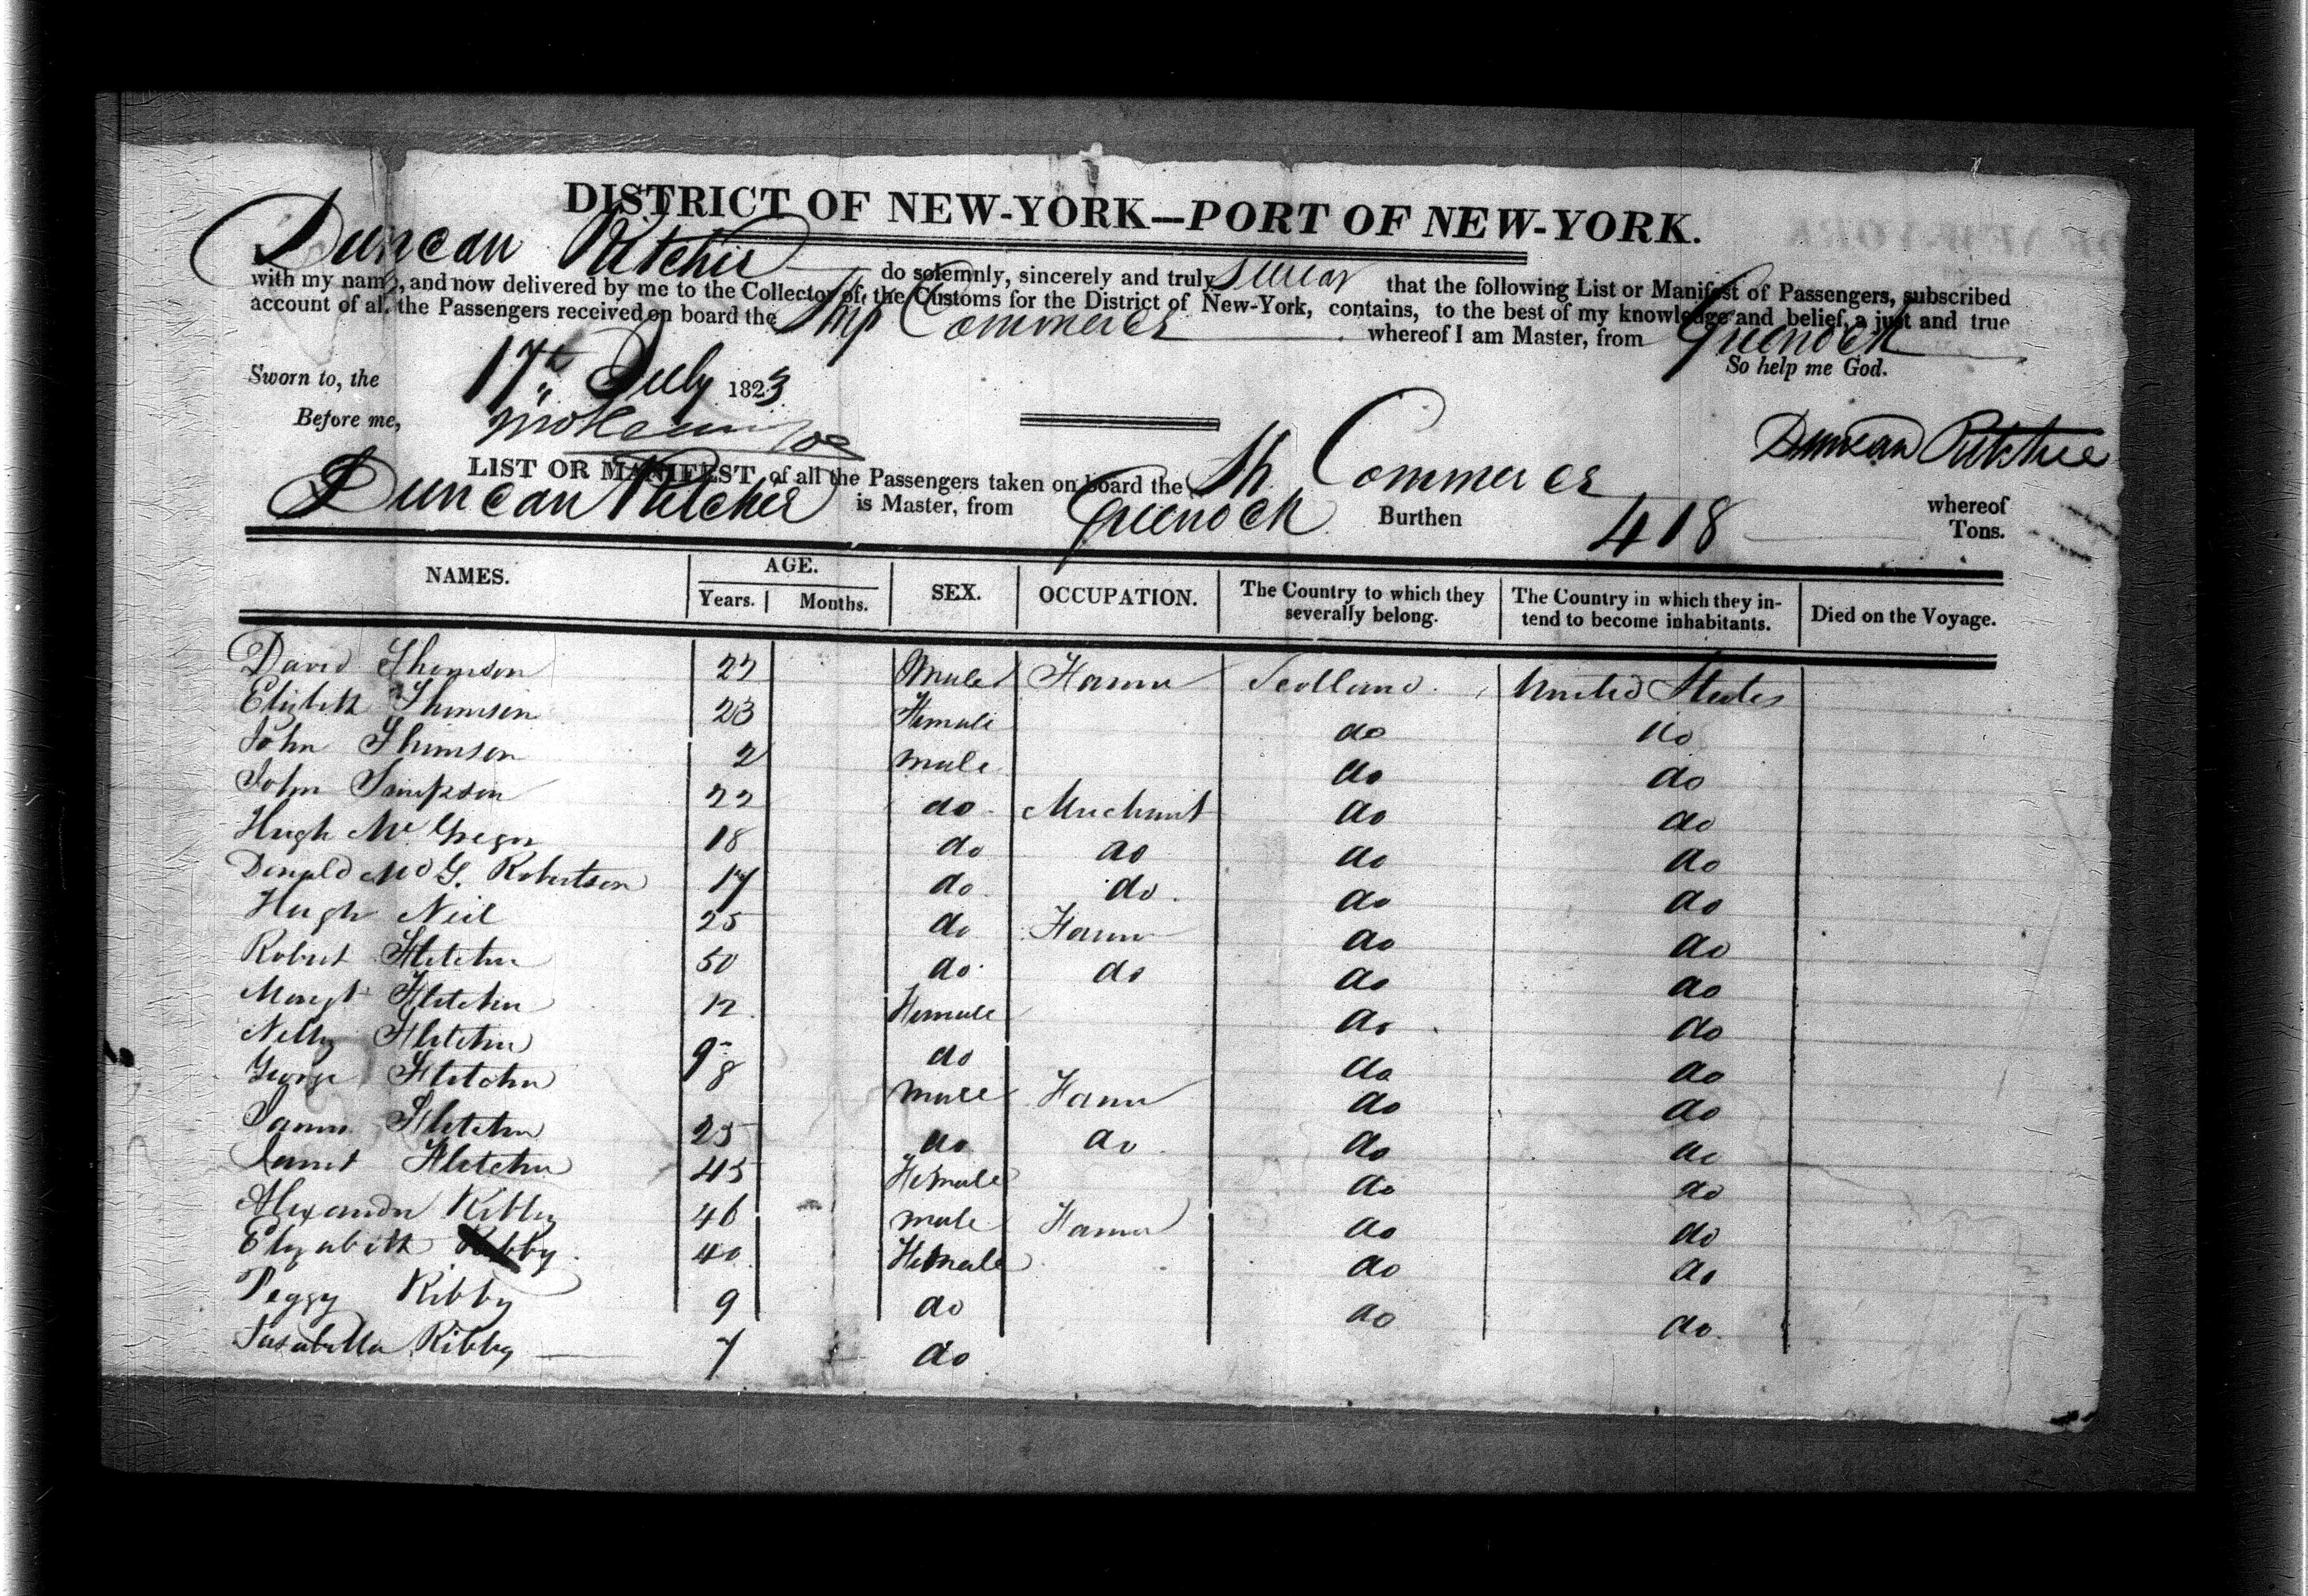 DISTRICT OF NEW-YORK—PORT OF NEW-YORK.
Duncan Ritchie do solemnly, sincerely and truly swear that the following List or Manifest of Passengers, subscribed
with my name, and now delivered by me to the Collector of the Customs for the District of New-York, contains, to the best of my knowledge and belief, a just and true
account of all the Passengers received on board the Ship Commerce whereof I am Master, from Greenock
So help me God.
Sworn to, the 17th July 1823
Before me,
Duncan Ritchie
LIST OR MANIFEST of all the Passengers taken on board the Sh. Commerce whereof
Duncan Ritchie is Master, from Greenock Burthen 418 Tons.
NAMES. AGE. Years. Months. SEX. OCCUPATION. The Country to which they severally belong. The Country in which they intend to become inhabitants. Died on the Voyage.
David Thomson 27 Male Farmer Scotland United States
Elizbeth Thomson 23 Female do do
John Thomson 2 male do do
John Simpson 22 do Merchant do do
Hugh Mc Gregor 18 do do do do
Donald Mc G. Robertson 17 do do do do
Hugh Neil 25 do Farmer do do
Robert Fletcher 50 do do do do
Margt Fletcher 12 Female do do
Nelly Fletcher 9 do do do
George Fletcher 8 male Farmer do do
James Fletcher 25 do do do do
Janet Fletcher 45 Female do do
Alexander Ribby 46 male Farmer do do
Elizabeth Ribby 40 Female do do
Peggy Ribby 9 do do do
Isabella Ribby 7 do